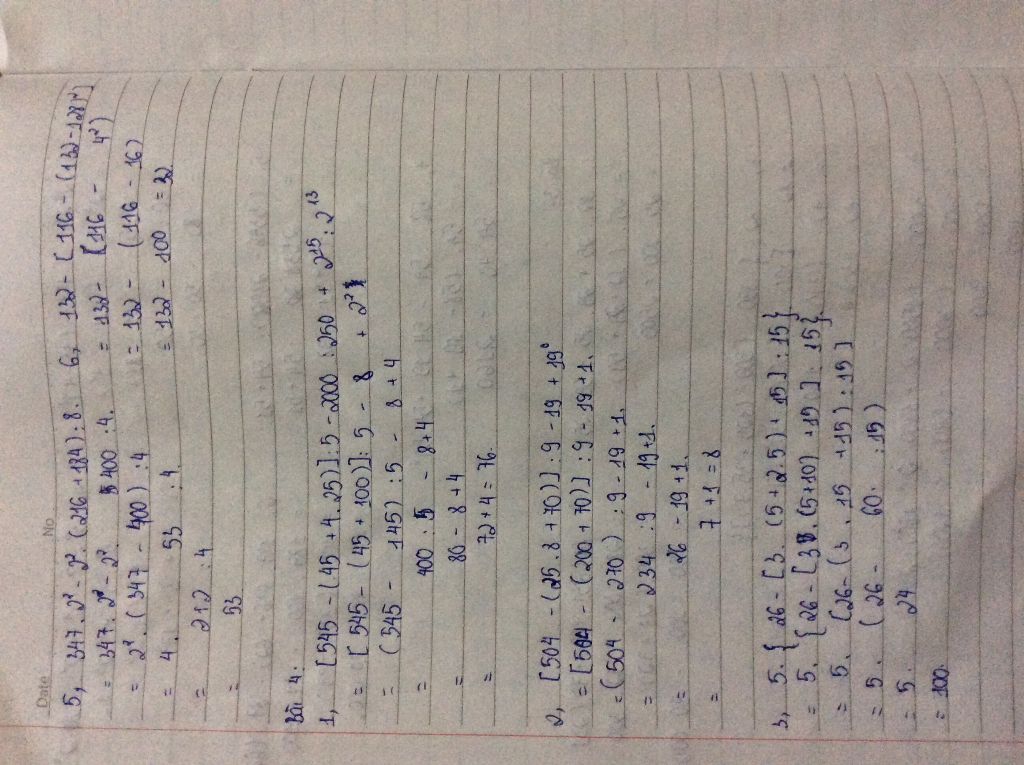 Date No
5, 347. 2² - 2². (216 + 184) : 8. 6, 132 - [116 - (132 - 128)²]
= 347. 2² - 2². 400 : 4. = 132 - [116 - 4²)
= 2². (347 - 400) : 4 = 132 - (116 - 16)
= 4. 53 : 4. = 132 - 100 = 32
= 212 : 4
= 53
Bài 4.
1, [545 - (45 + 4.25)] : 5 - 2000 : 250 + 2¹⁵ : 2¹³
= [545 - (45 + 100)] : 5 - 8 + 2²
= (545 - 145) : 5 - 8 + 4
= 400 : 5 - 8 + 4
= 80 - 8 + 4
= 72 + 4 = 76.
2, [504 - (25.8 + 70)] : 9 - 19 + 19⁰
= [504 - (200 + 70)] : 9 - 19 + 1.
= (504 - 270) : 9 - 19 + 1.
= 234 : 9 - 19 + 1.
= 26 - 19 + 1.
= 7 + 1 = 8
3, 5.{26 - [3. (5 + 2.5) + 15] : 15}
= 5.{26 - [3.(5+10) + 15] : 15}.
= 5. [26 - (3 . 15 + 15) : 15]
= 5. (26 - 60. : 15)
= 5. 24
= 100.